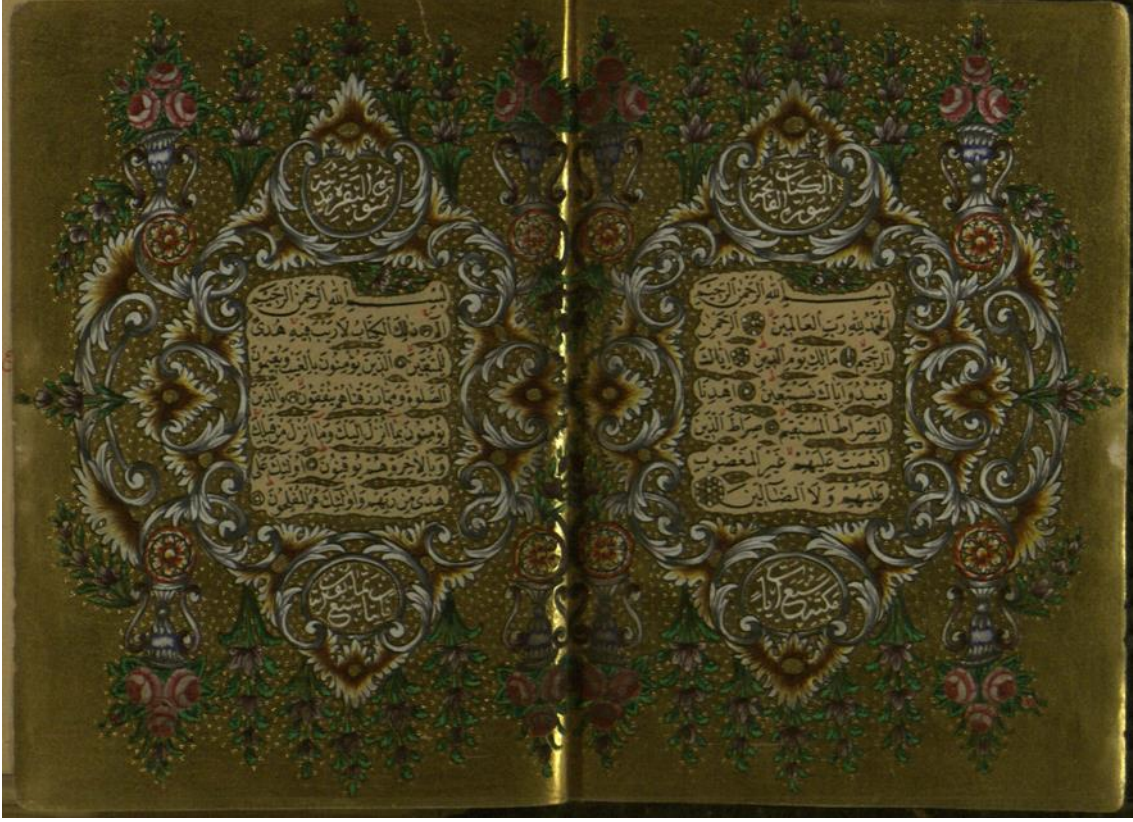 سورة الفاتحة الكتاب
بسم الله الرحمن الرحيم
الحمد لله رب العالمين الرحمن
الرحيم مالك يوم الدين اياك
نعبد واياك نستعين اهدنا
الصراط المستقيم صراط الذين
انعمت عليهم غير المغضوب
عليهم ولا الضالين
سبع آيات
سورة البقرة
بسم الله الرحمن الرحيم
الم ذلك الكتاب لا ريب فيه هدى
للمتقين الذين يؤمنون بالغيب ويقيمون
الصلوة ومما رزقناهم ينفقون والذين
يؤمنون بما انزل اليك وما انزل من قبلك
وبالاخرة هم يوقنون اولئك على
هدى من ربهم واولئك هم المفلحون